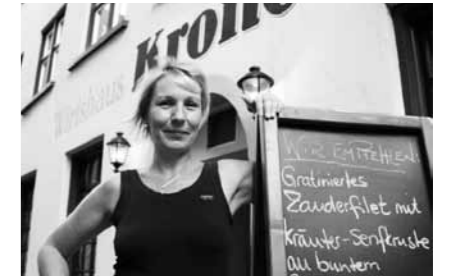 Krone
Wirtshaus
WIR EMPFEHLEN:
Gratiniertes
Zanderfilet mit
Kräuter-Senfkruste
an buntem